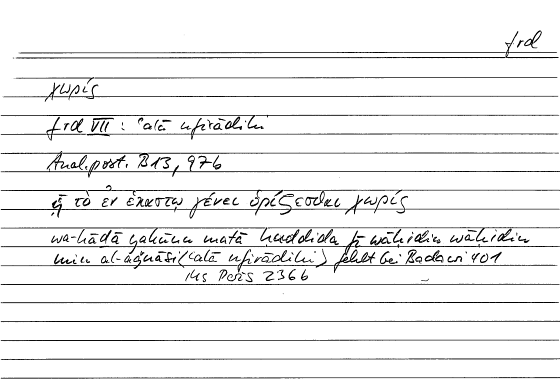 frd
χωρίς
frd VII: ʿalā nfirādihi
Anal. post. B 13, 97b
ᾗ τὸ ἐν ἑκάστῳ γένει ὁρίζεσθαι χωρίς
wa-hāḏā yakūnu matā ḥuddida fī wāḥidin wāḥidin
min al-aǧnāsi (ʿalā nfirādihi) fehlt bei Badawi 401
Ms Paris 236b